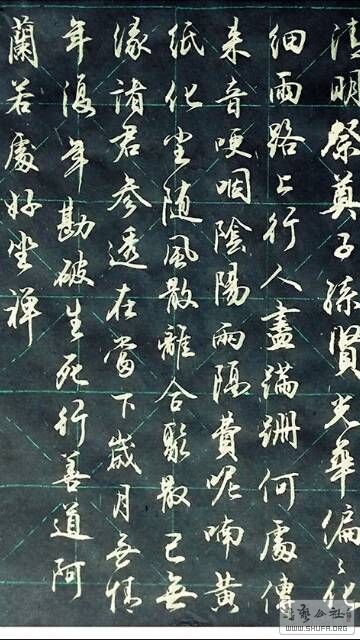 清明祭奠子孫賢光華偏々化
細雨路上行人盡蹣跚何處傳
来音哽咽陰陽兩隔費呢喃黃
纸化尘随風散離合聚散已無
缘諸君參透在當下歲月無情
年復年勘破生死行善道阿
蘭若處好坐禅
公社
WWW.SHUFA.ORG